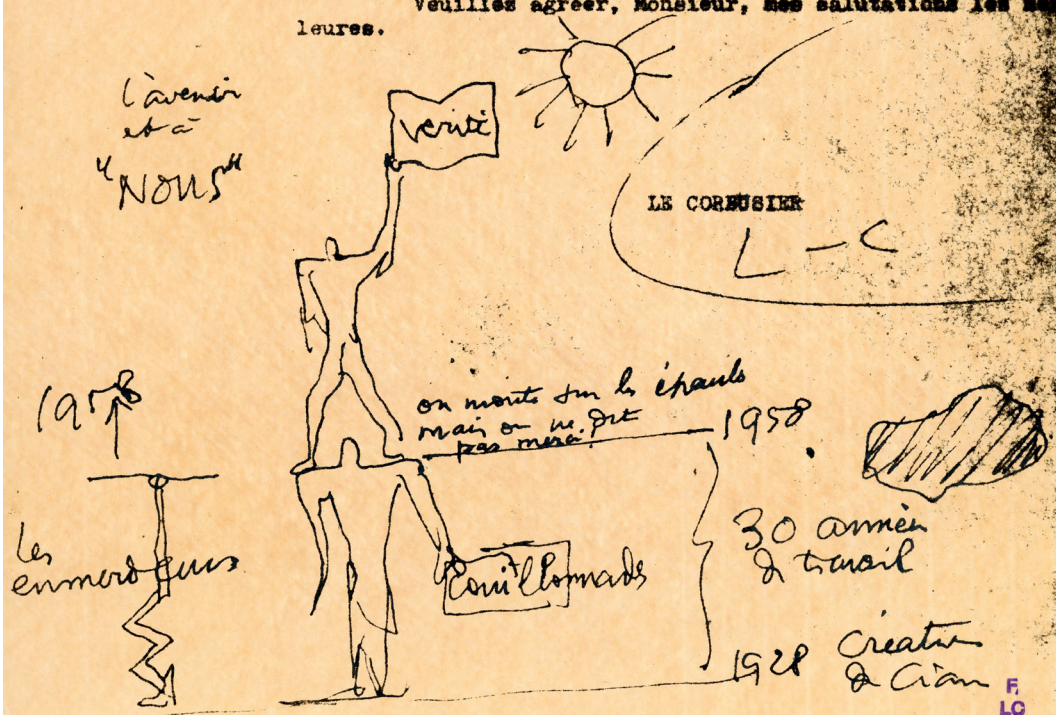 Veuillez agréer, Monsieur, mes salutations les
leures.
l'avenir
est à
"NOUS"
vérité
LE CORBUSIER
L-C
on monte sur les épaules
mais on ne dit
pas merci.
1958
1958
les
emmerdeurs
couillonnades
30 années
de travail
1928
création
de Ciam
F.
LC